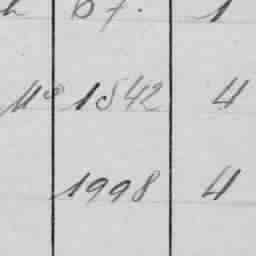 67. 1
No 1542 4
1998 4